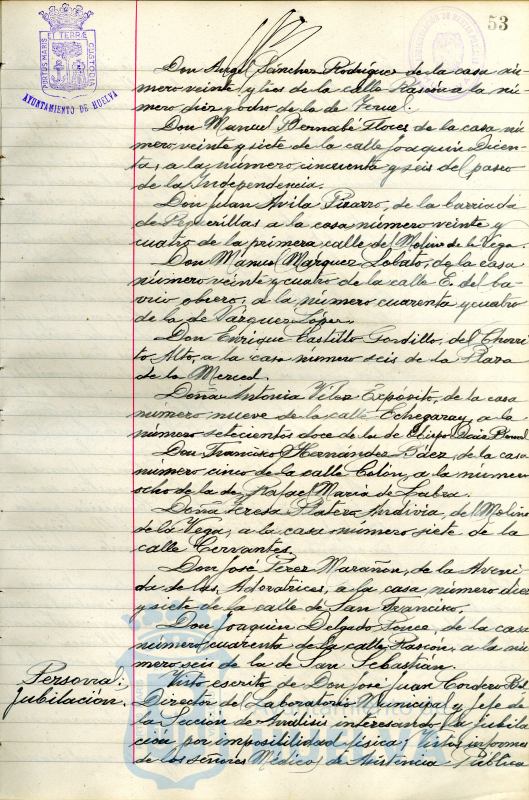 53
PORTUS MARIS ET TERRÆ CUSTODIA
AYUNTAMIENTO DE HUELVA
Don Angel Sánchez Rodríguez de la casa nú-
mero veinte y tres de la calle Rascón a la nú-
mero diez y ocho de la de Teruel.
Don Manuel Bernabé Flores de la casa nú-
mero veinte y siete de la calle Joaquín Dicen-
ta, a la número cincuenta y seis del paseo
de la Independencia.
Don Juan Avila Pizarro, de la barriada
de Peguerillas a la casa número veinte y
cuatro de la primera calle del Molino de la Vega.
Don Manuel Márquez Lobato, de la casa
número veinte y cuatro de la calle E. del ba-
rrio obrero, a la número cuarenta y cuatro
de la de Vázquez López.
Don Enrique Castillo Gordillo, del Chorri-
to Alto, a la casa número seis de la Plaza
de la Merced.
Doña Antonia Vélez Expósito, de la casa
número nueve de la calle Echegaray, a la
número setecientos doce de la de Obispo
Don Francisco Hernández Báez, de la casa
número cinco de la calle Colón, a la número
ocho de la de Rafael María de Labra.
Doña Teresa Platero, del Molino
de la Vega, a la casa número siete de la
calle Cervantes.
Don José Pérez Marañón, de la Aveni-
da de las Adoratrices, a la casa número diez
y siete de la calle de San Francisco.
Don Joaquín Delgado Ponce, de la casa
número cuarenta de la calle Rascón, a la nú-
mero seis de la de San Sebastián.
Personal:
Jubilación.
Visto escrito de Don José Juan Cordero
Director del Laboratorio Municipal y Jefe de
la Sección de Análisis interesando la jubila-
ción por imposibilidad física; Vistos informes
de los señores Médicos de Asistencia Pública
Ayuntamiento de
HUELVA